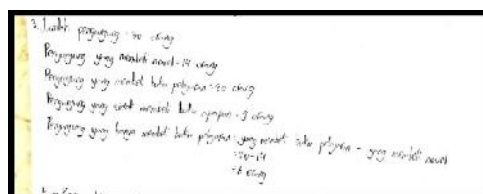 3. Jumlah pengunjung = 40 orang
Pengunjung yang membeli novel = 14 orang
Pengunjung yang membeli buku pelajaran = 20 orang
Pengunjung yang membeli buku = 9 orang
Pengunjung yang hanya membeli buku pelajaran = yang membeli buku pelajaran - yang membeli novel
= 20-14
= 6 orang